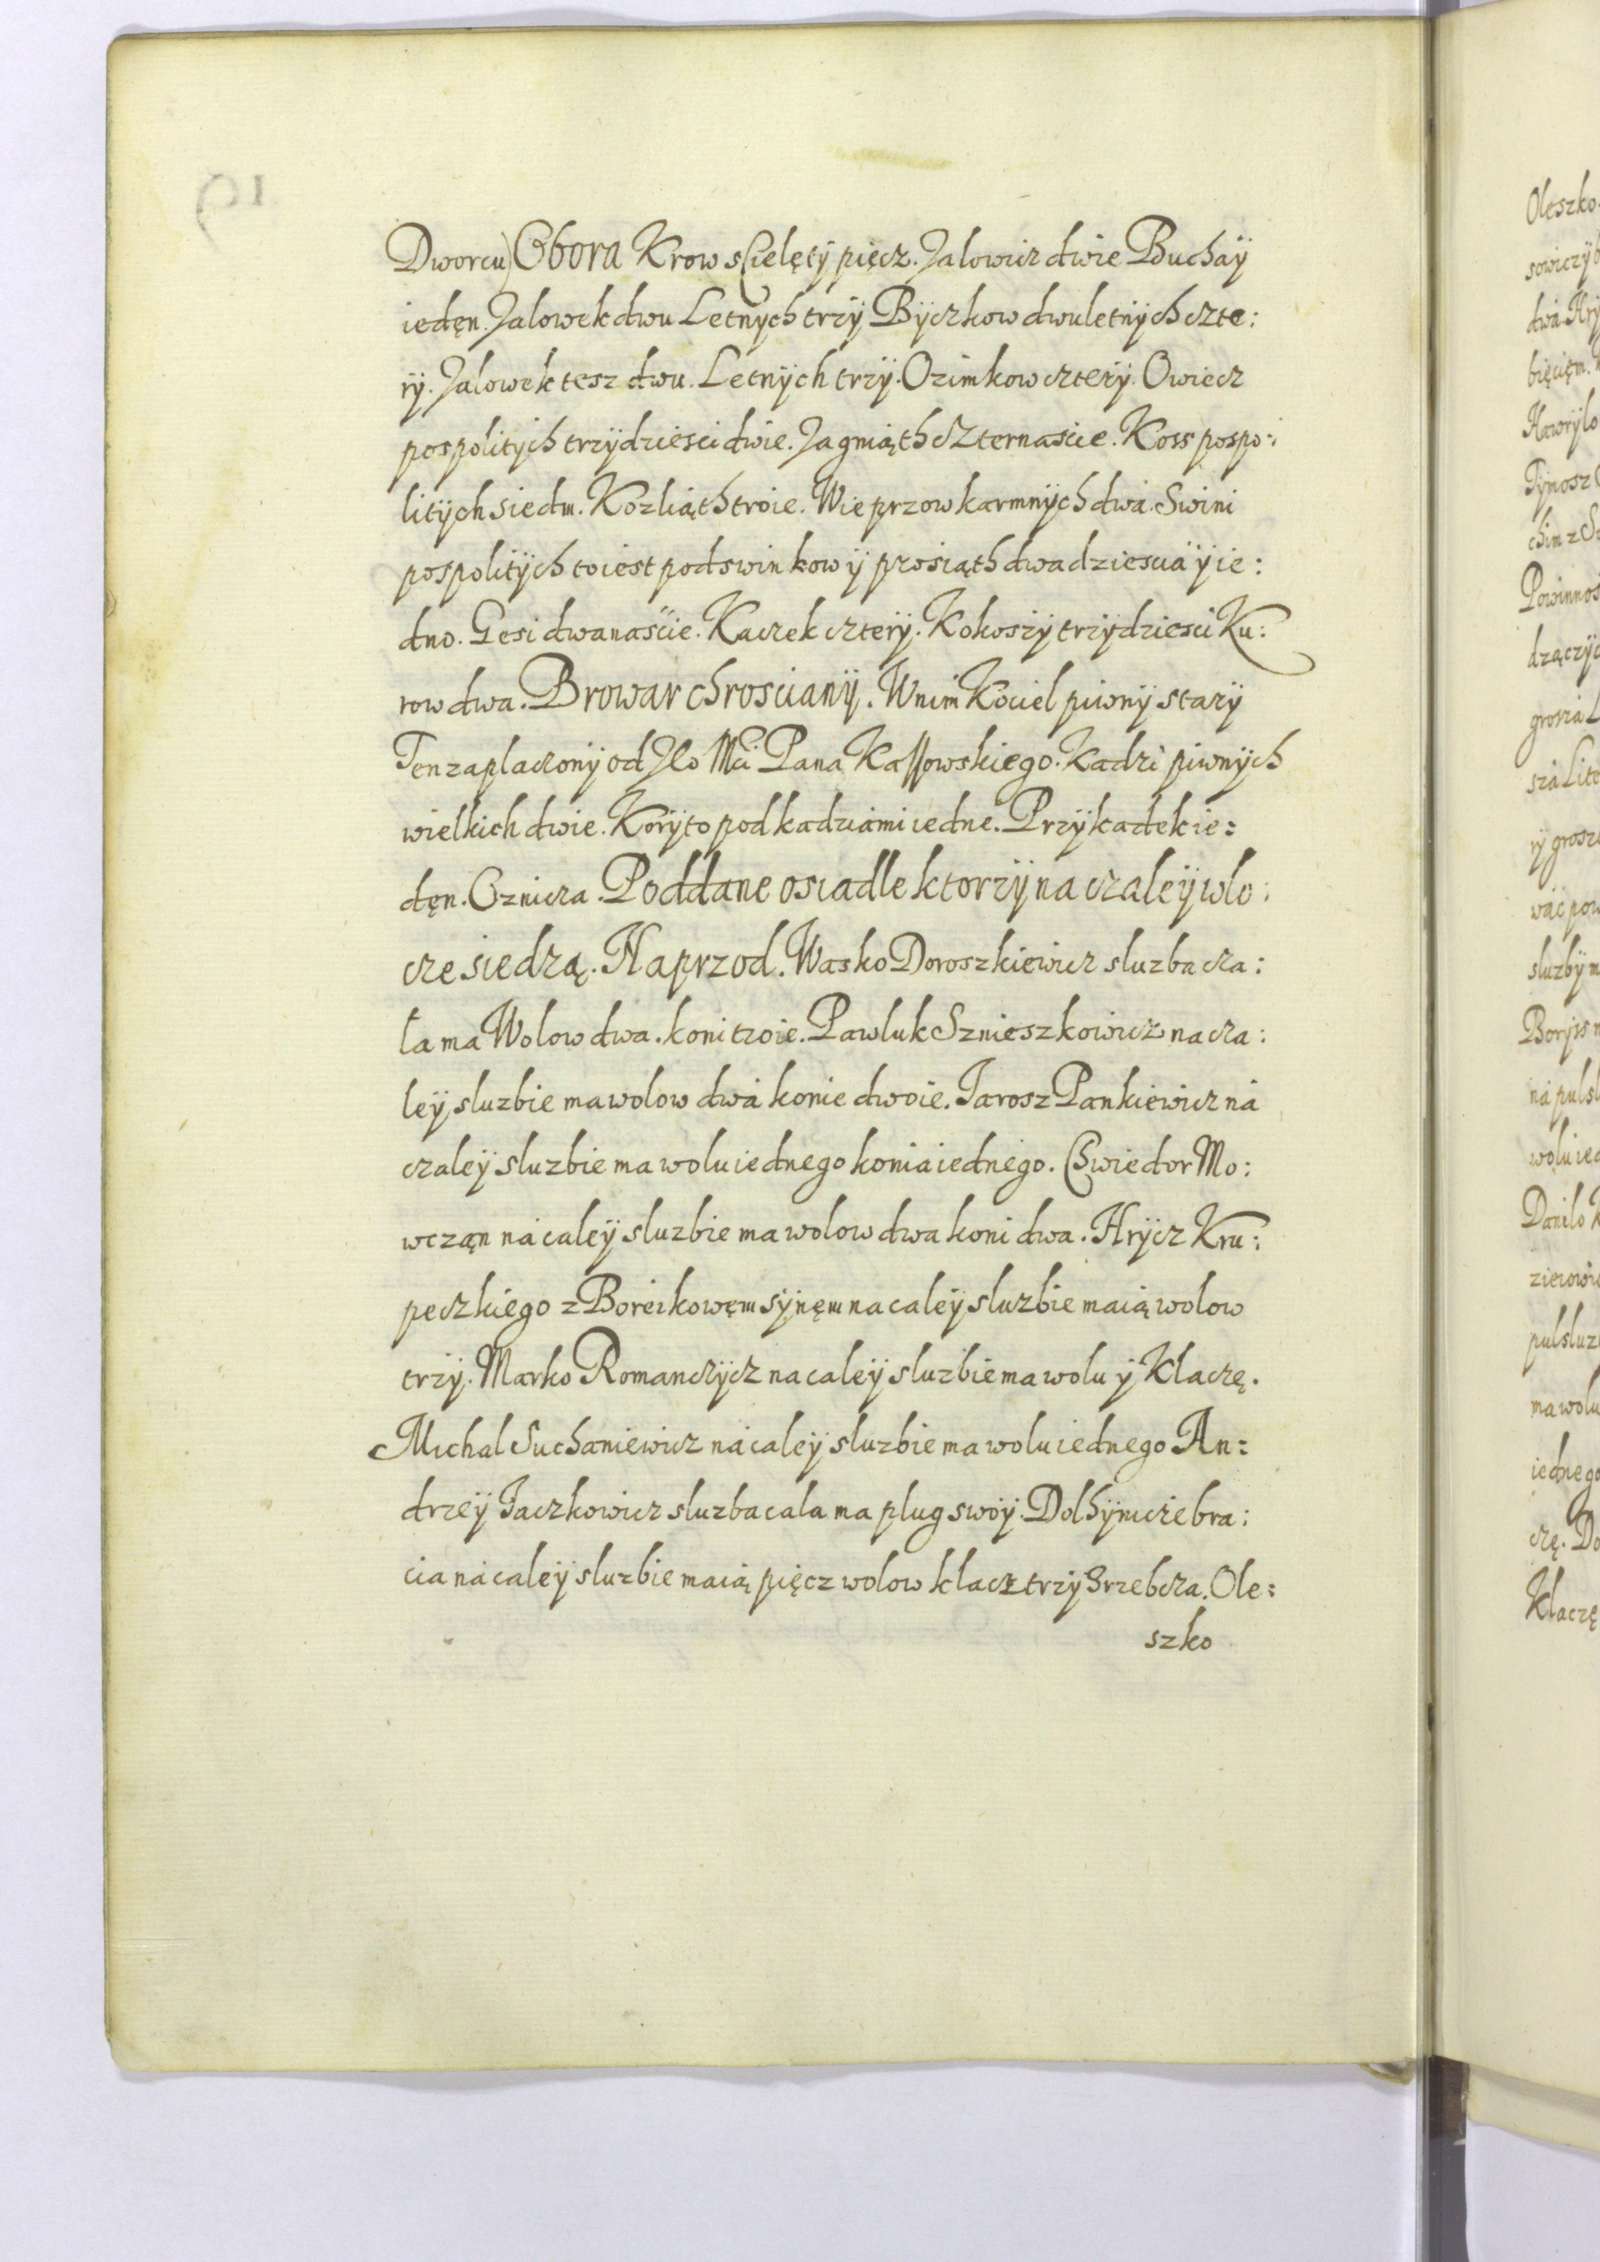 Dworcu) Obora Krow s Cielęty pięcz. Jalowicz dwie Buchaÿ
iedęn. Jalowek dwu Letnÿch trzÿ Bÿczkow dwuletnÿch czte:
rÿ. Jalowek tesz dwu. Letnÿch trzÿ. Ozimkow czterÿ. Owiecz
pospolitÿch trzÿdziesci dwie. Jagniąth czternascie. Koss pospo:
litÿch siedm. Kozliąth troie. Wieprzow karmnÿch dwa. Swini
pospolitÿch to iest podswinkow ÿ prosiąth dwadziescia ÿ ie:
dno. Gesi dwanascie. Kaczek czterÿ. Kokoszÿ trzÿdziesci Ku:
row dwa. Browar chroscianÿ. W nim Kociel piwnÿ starÿ
Ten zaplaczonÿ od Je Mci Pana Kassowskiego. Kadzi piwnÿch
wielkich dwie. Korÿto pod kadziami iedne. Przÿkadek ie:
dęn. Oznicza. Poddane osiadle ktorzÿ na czaleÿ wlo:
cze siedzą. Naprzod. Wasko Doroszkiewicz sluzba cza:
la ma Wolow dwa. koni troie. Pawluk Sznieszkowicz na cza:
leÿ sluzbie ma wolow dwa konie dwoie. Jarosz Pankiewicz na
czaleÿ sluzbie ma wolu iednego konia iednego. Chwiedor Mo:
wcząn na caleÿ sluzbie ma wolow dwa koni dwa. Hrÿcz Kru:
peczkiego z Boreikowęm sÿnęm na caleÿ sluzbie maią wolow
trzÿ. Marko Romanczÿcz na caleÿ sluzbie ma wolu ÿ Klaczę.
Michal Suchaniewicz na caleÿ sluzbie ma wolu iednego An:
drzeÿ Jaczkowicz sluzba cala ma plug swoÿ. Dolhÿnicze bra:
cia na caleÿ sluzbie maią pięcz wolow klacz trzÿ Zrzebcza. Ole:
szko